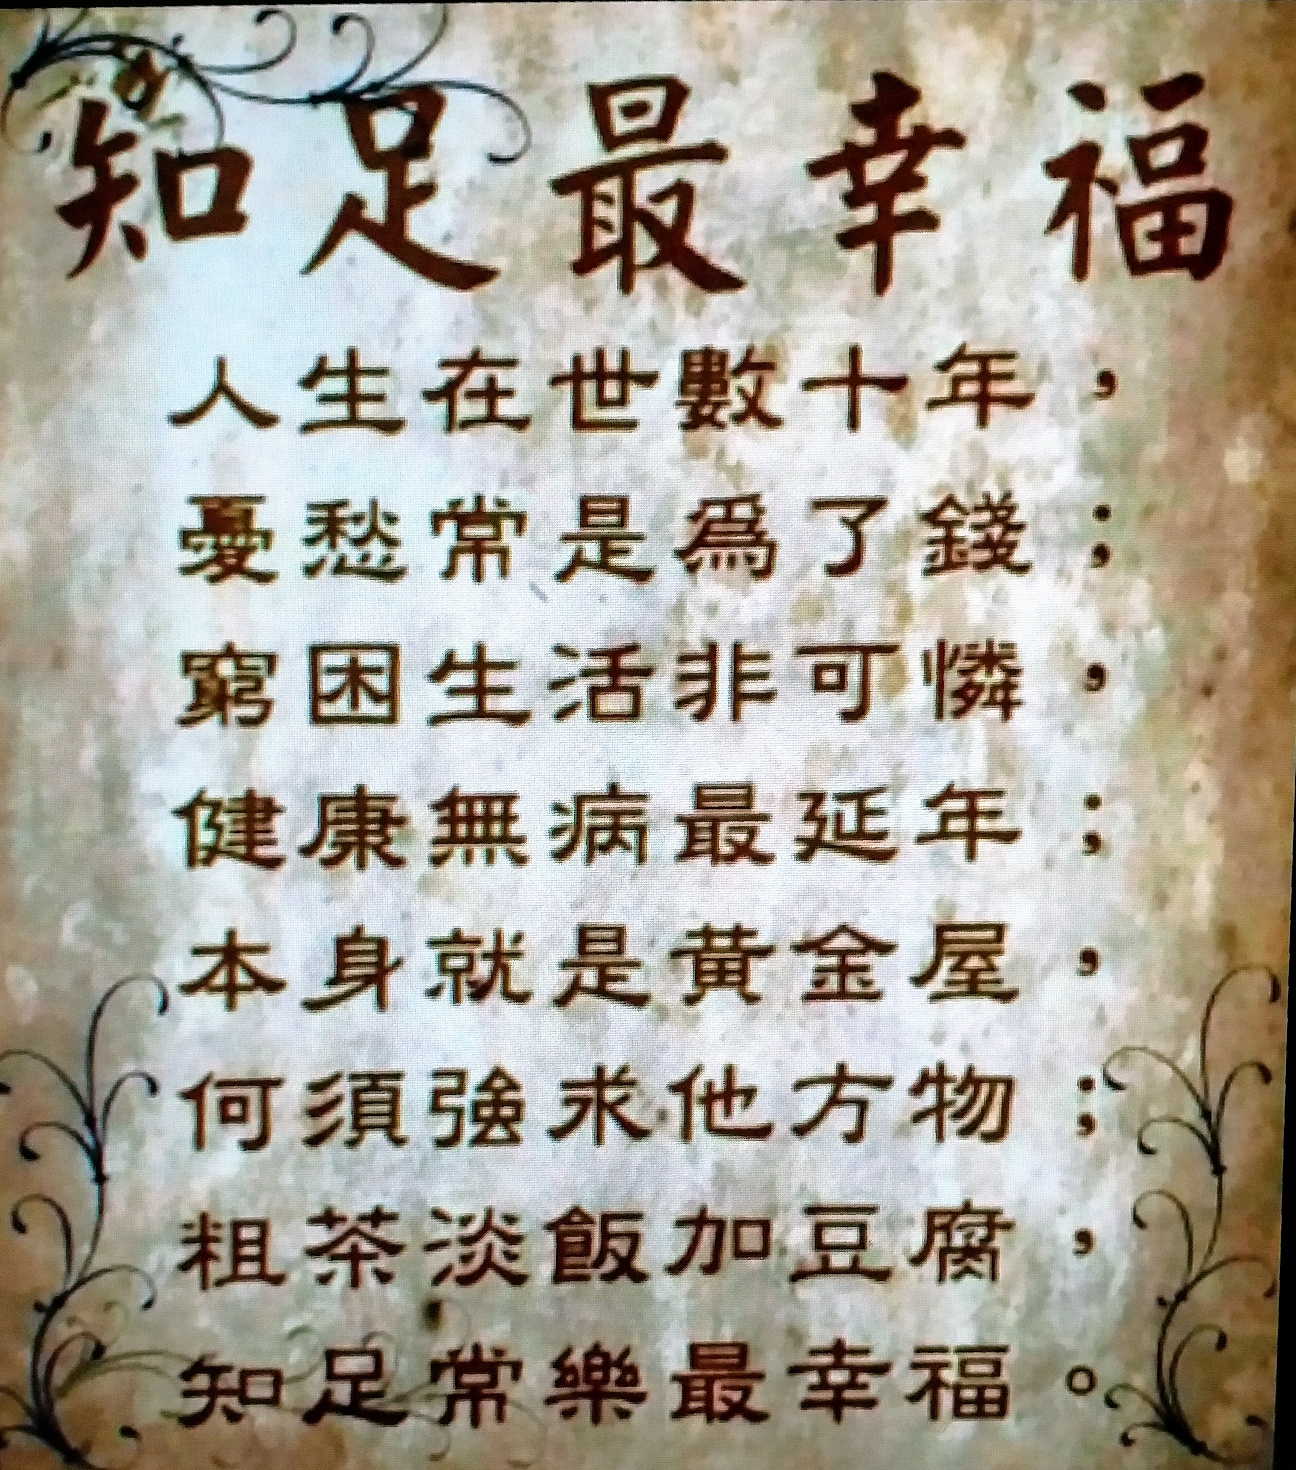 知足最幸福
人生在世數十年，
憂愁常是爲了錢；
窮困生活非可憐，
健康無病最延年；
本身就是黃金屋，
何須強求他方物；
粗茶淡飯加豆腐，
知足常樂最幸福。